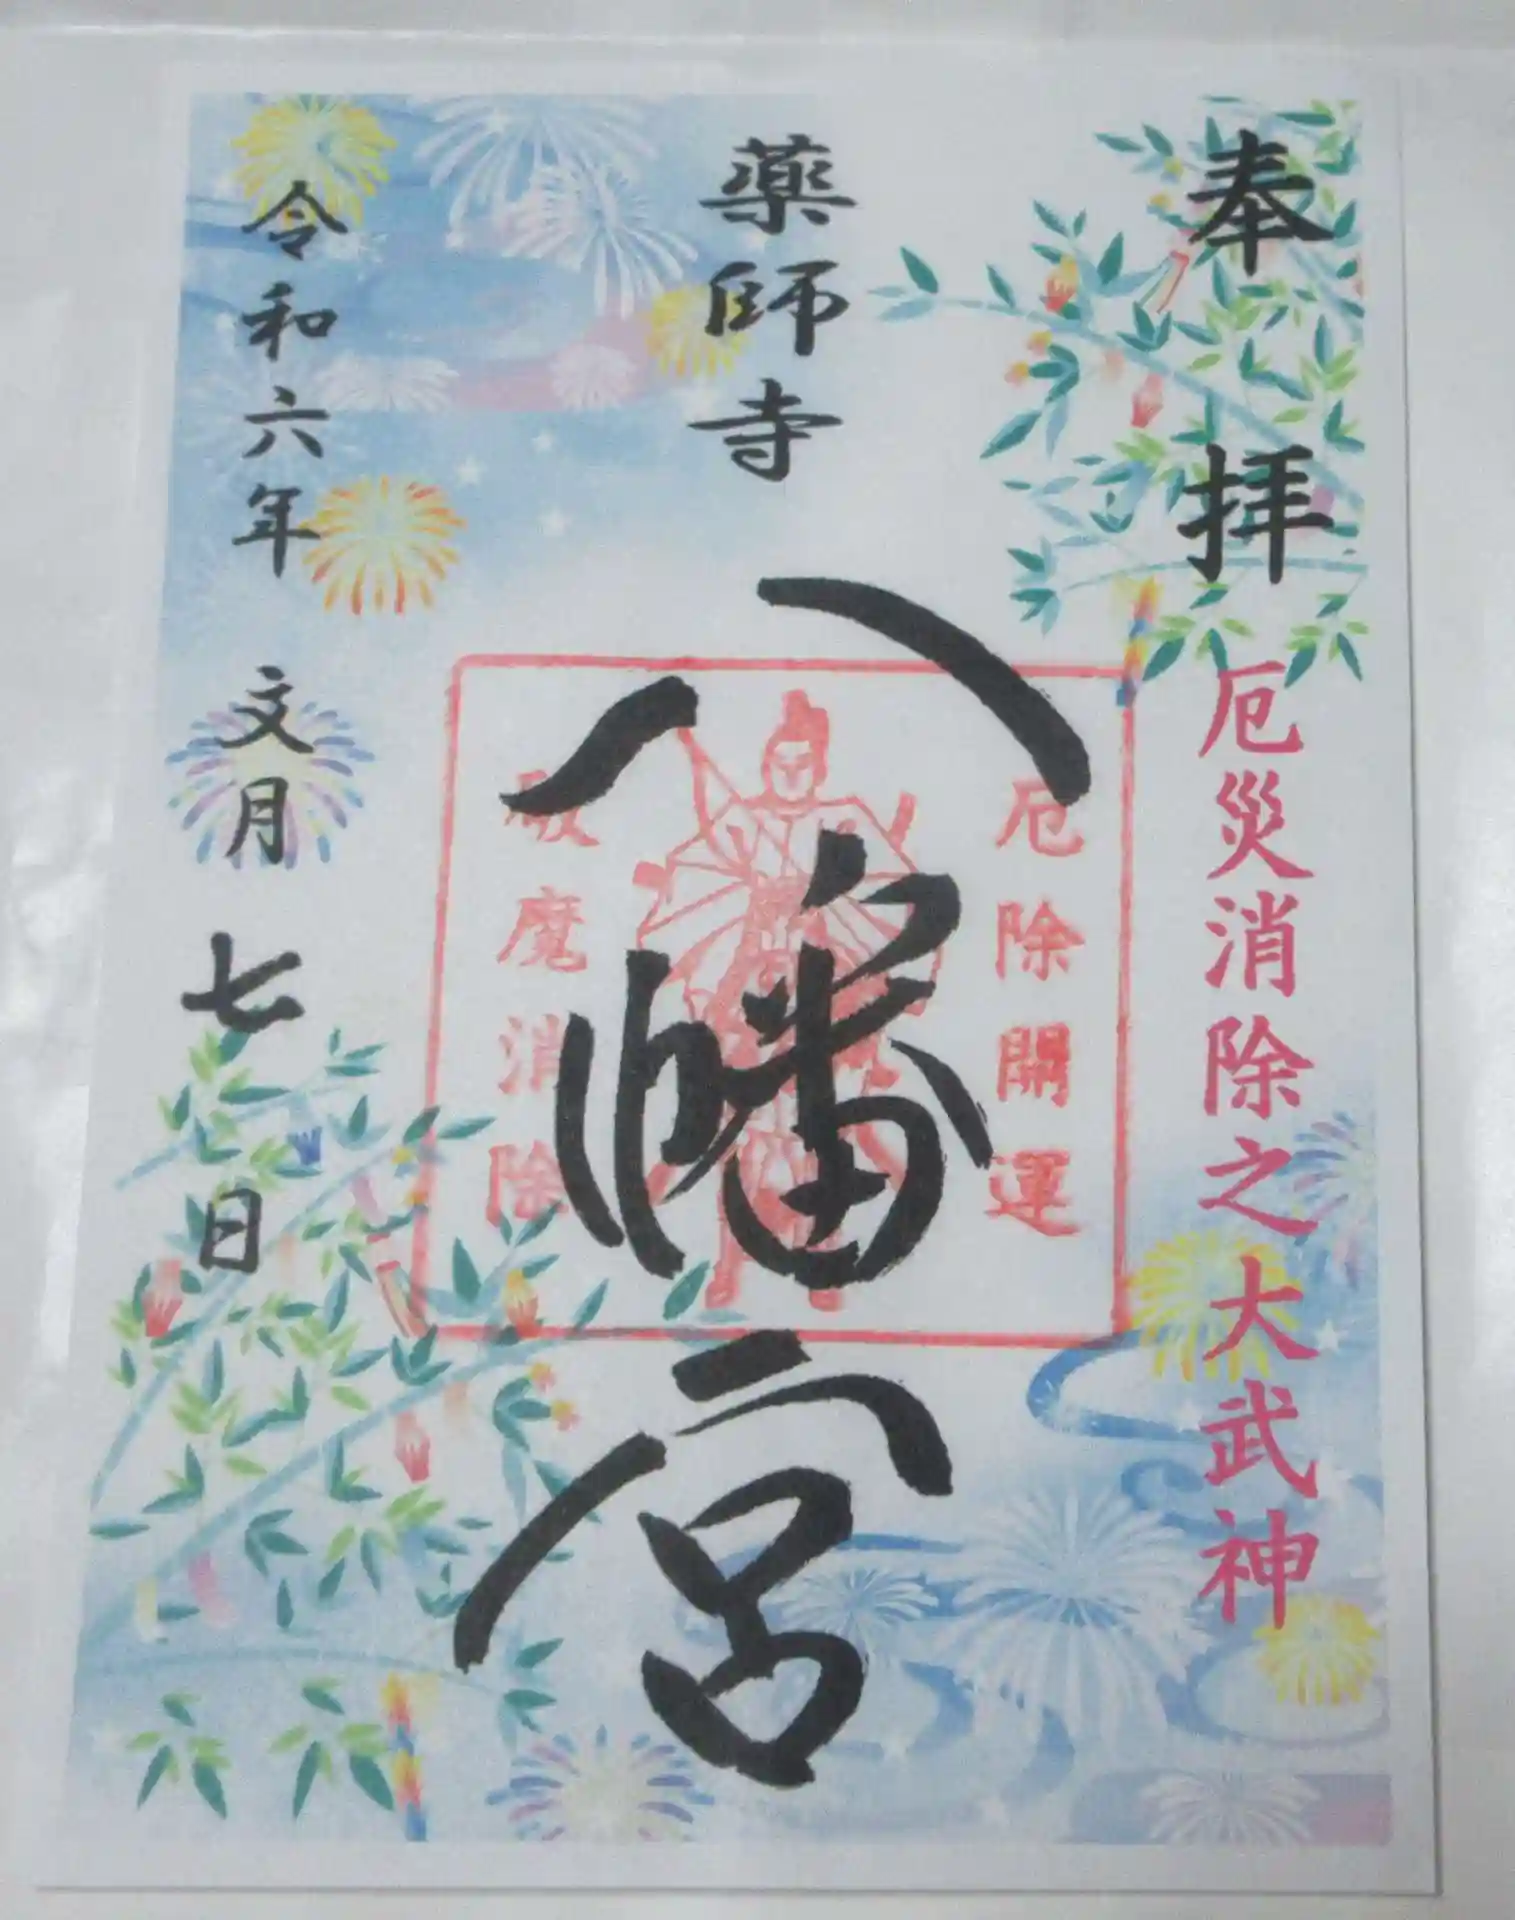 奉拝
厄災消除之大武神
薬師寺
八幡宮
厄除開運
破魔消除
令和六年 文月 七日